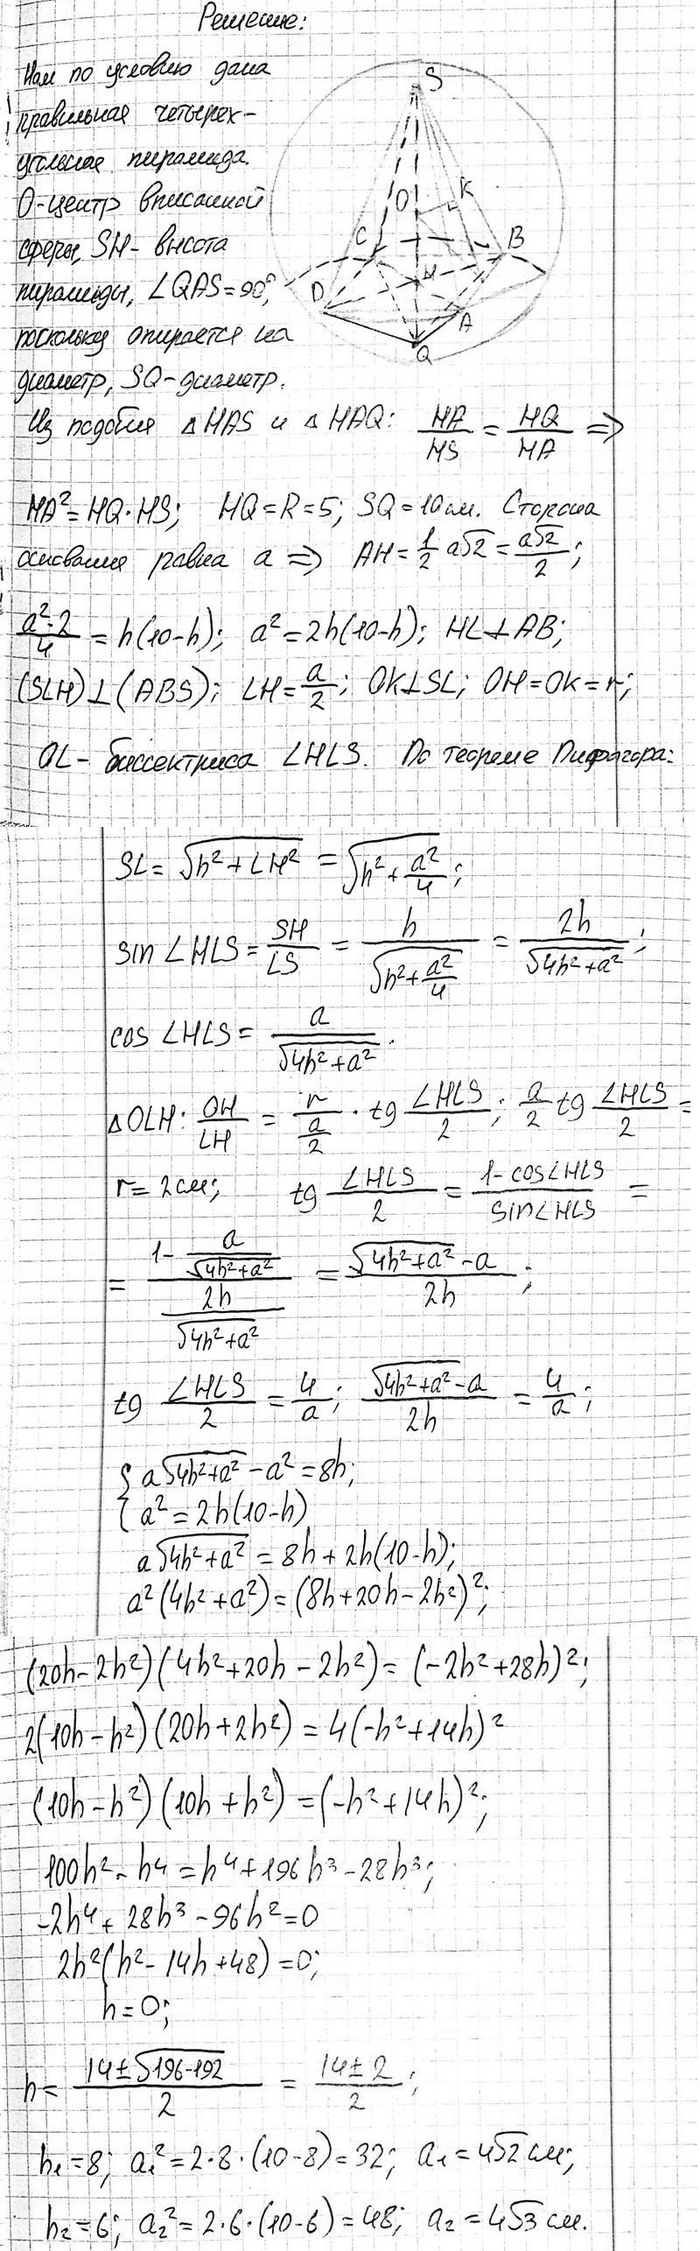 Решение:
Нам по условию дана
правильная четырех-
угольная пирамида.
O-центр вписанной
сферы, SH- высота
пирамиды, ∠QAS=90°,
поскольку опирается на
диаметр, SQ-диаметр.
S
O K
C B
H
D A
Q
Из подобия △HAS и △HAQ: HA/HS = HQ/HA =>
HA²=HQ·HS; HQ=R=5; SQ=10см. Сторона
основания равна a => AH=1/2 a√2=a√2/2;
a²·2/4 = h(10-h); a²=2h(10-h); HL⊥AB;
(SLH)⊥(ABS); LH=a/2; OK⊥SL; OH=OK=r;
OL- биссектриса ∠HLS. По теореме Пифагора:
SL= √(h²+LH²) = √(h²+a²/4);
sin ∠HLS= SH/LS = h/√(h²+a²/4) = 2h/√(4h²+a²);
cos ∠HLS= a/√(4h²+a²).
△OLH: OH/LH = r/(a/2) · tg ∠HLS/2; a/2 tg ∠HLS/2 =
r=2см; tg ∠HLS/2 = (1-cos∠HLS)/(sin∠HLS) =
= (1- a/√(4h²+a²))/(2h/√(4h²+a²)) = (√(4h²+a²)-a)/2h;
tg ∠HLS/2 = 4/a; (√(4h²+a²)-a)/2h = 4/a;
{ a√(4h²+a²)-a²=8h;
{ a²=2h(10-h)
a√(4h²+a²) = 8h+2h(10-h);
a²(4h²+a²)=(8h+20h-2h²)²;
(20h-2h²)(4h²+20h-2h²)= (-2h²+28h)²;
2(10h-h²)(20h+2h²) = 4(-h²+14h)²
(10h-h²)(10h+h²)=(-h²+14h)²;
100h²-h⁴=h⁴+196h³-28h³;
-2h⁴+28h³-96h²=0
2h²(h²-14h+48)=0;
h=0;
h= (14±√(196-192))/2 = (14±2)/2;
h₁=8; a₁²=2·8·(10-8)=32; a₁=4√2см;
h₂=6; a₂²=2·6·(10-6)=48; a₂=4√3см.